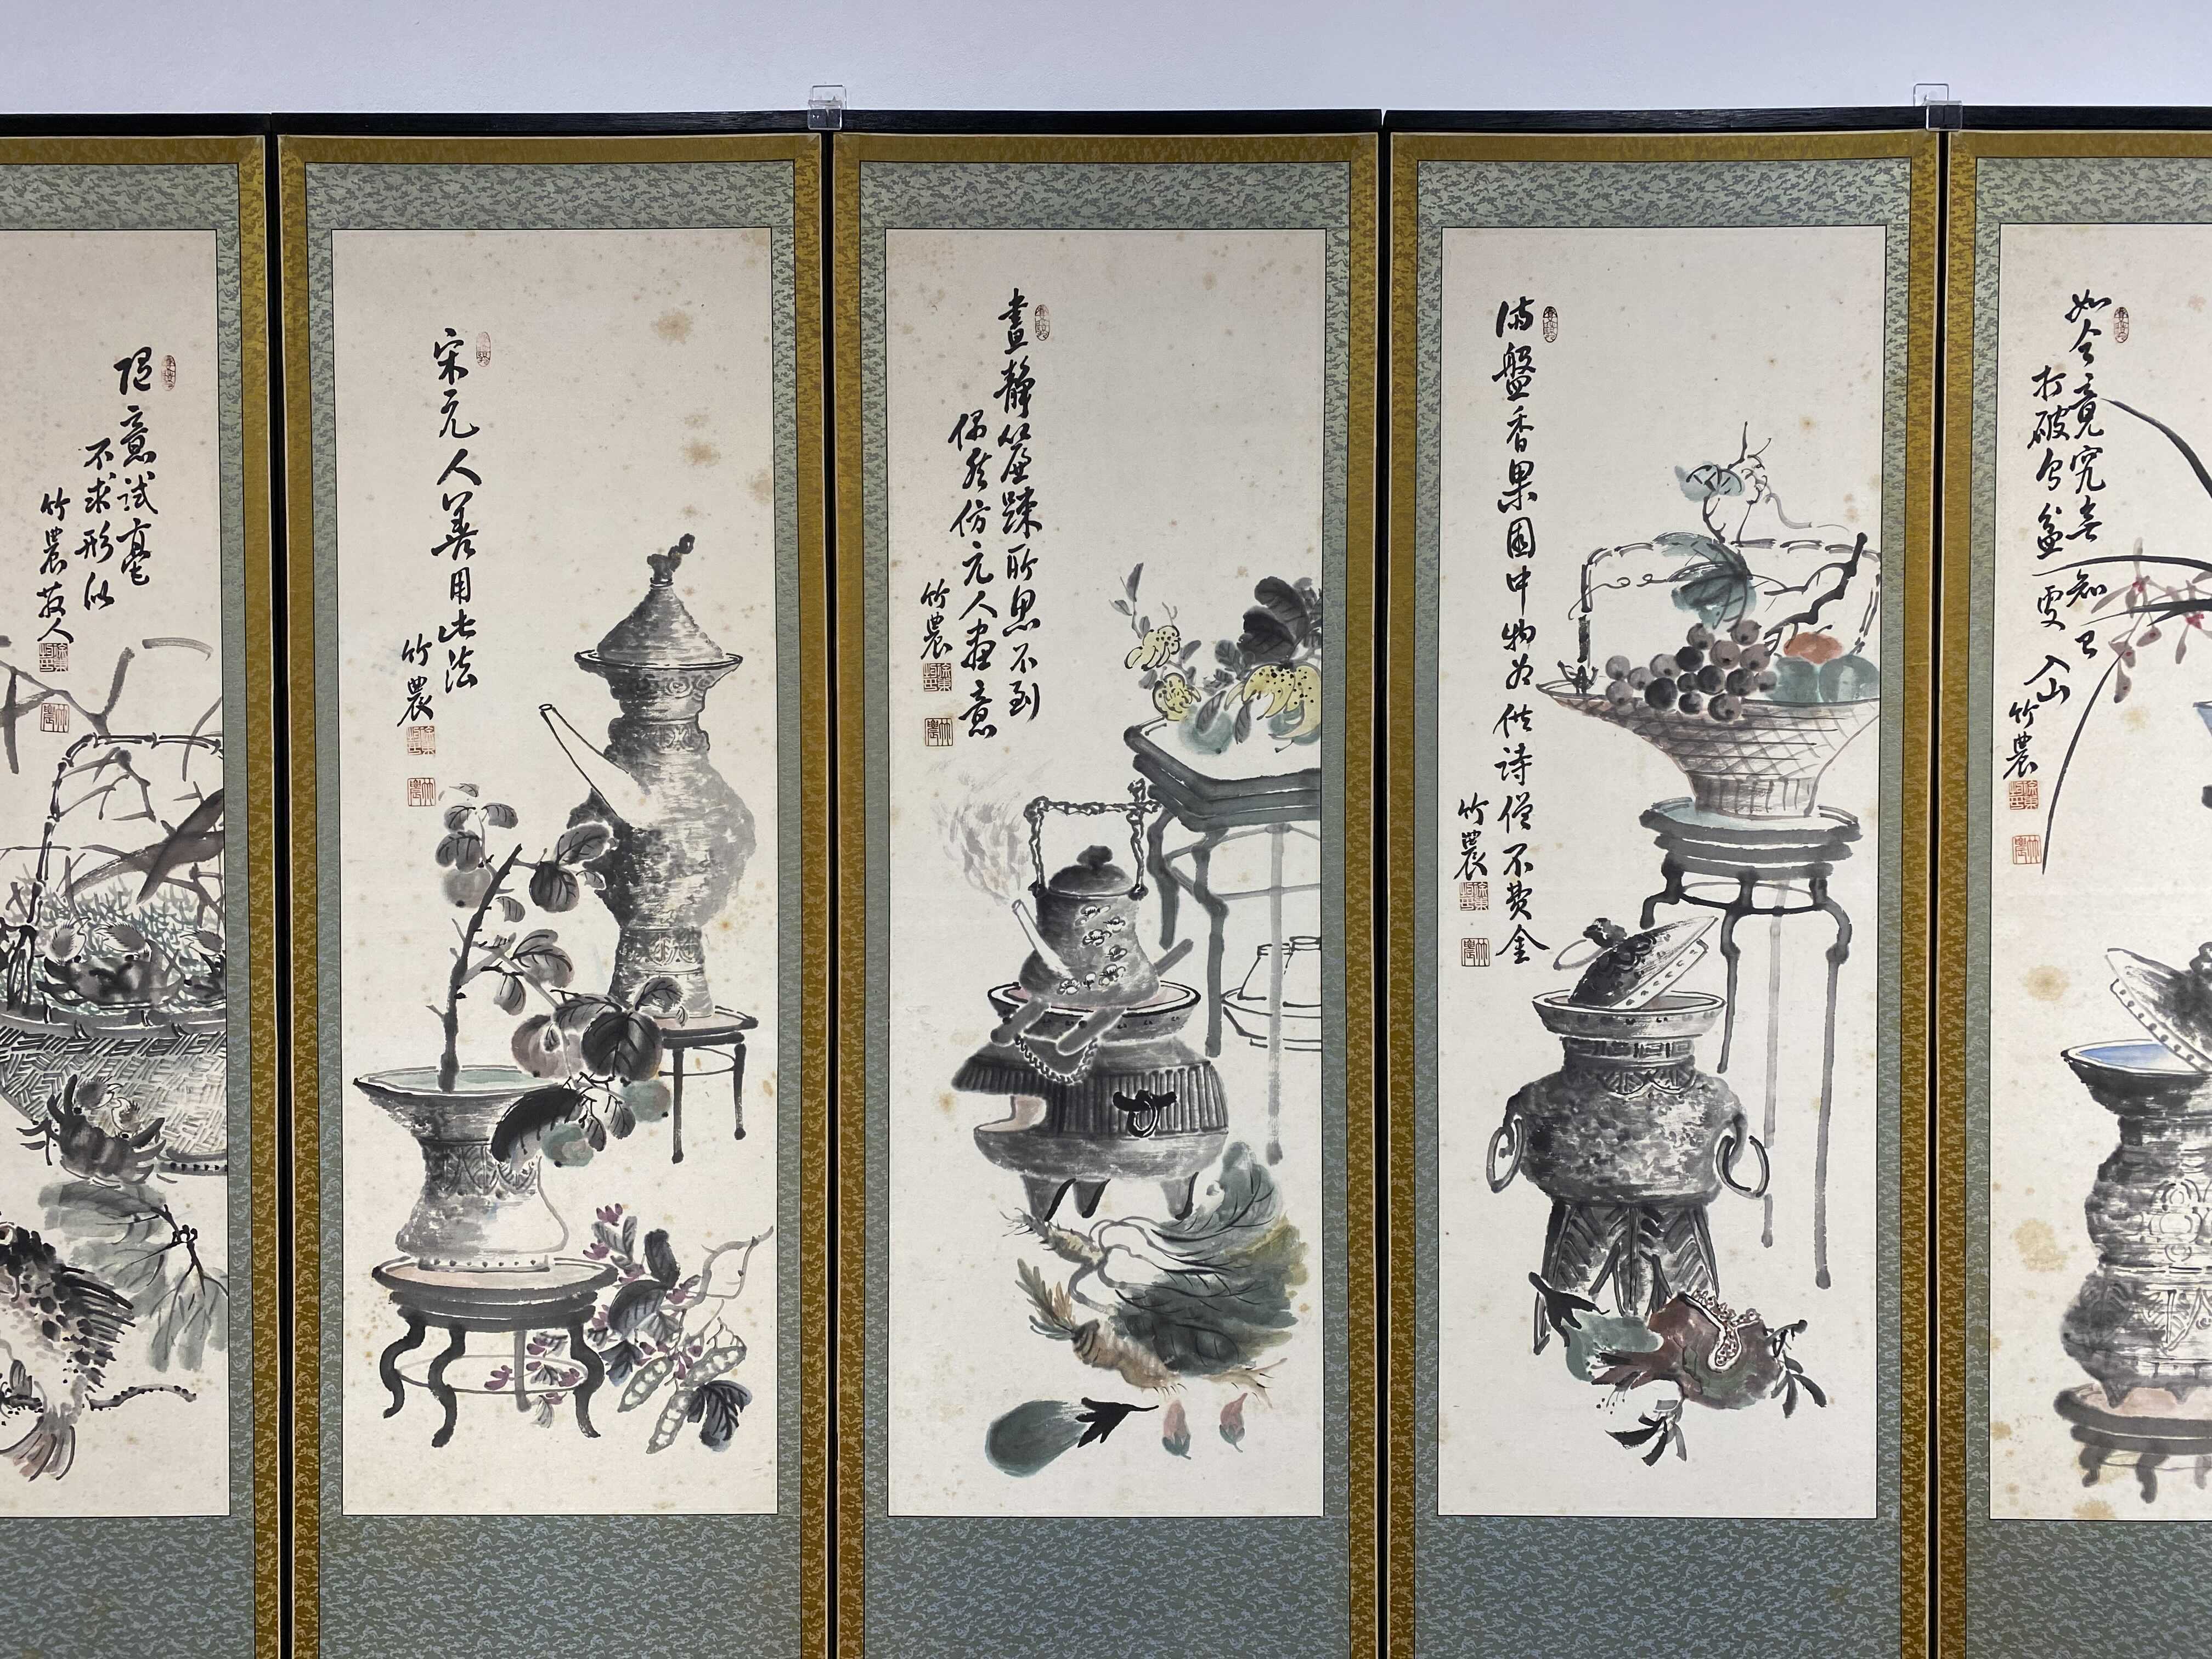 如今竟究無知己
打破烏盆更入山
竹農
滿盤香果園中物為供詩僧不費金
竹農
晝靜簾疎所思不到
偶然仿元人畫意
竹農
宋元人善用此法
竹農
隨意試毫
不求形似
竹農散人